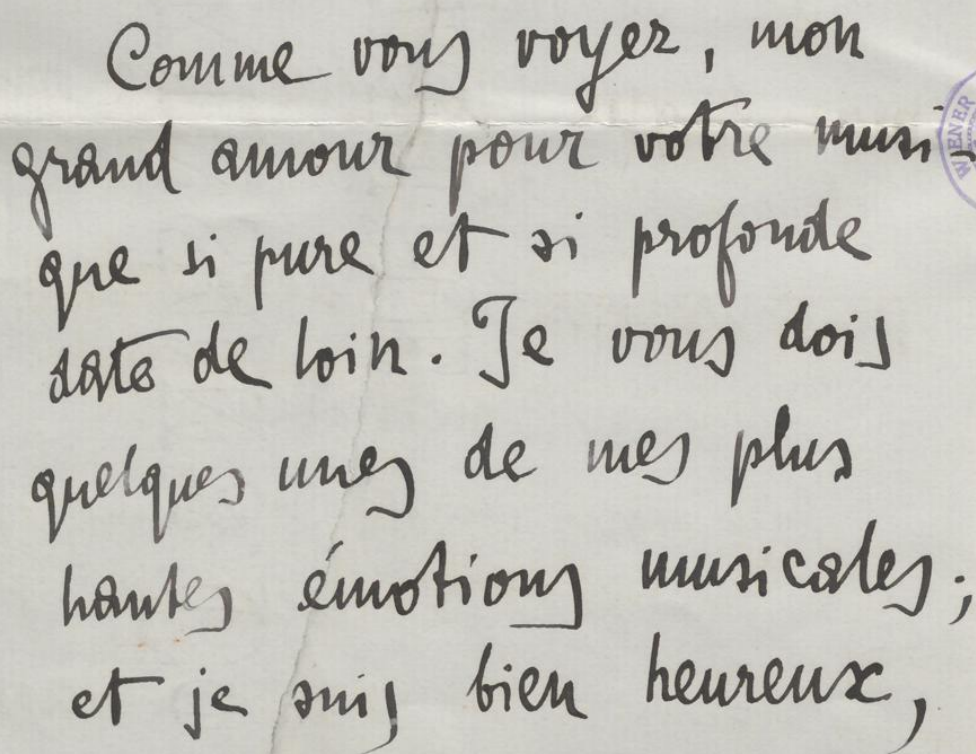 Comme vous voyez, mon
grand amour pour votre musi
que si pure et si profonde
date de loin. Je vous dois
quelques unes de mes plus
hautes émotions musicales;
et je suis bien heureux,
WIENER